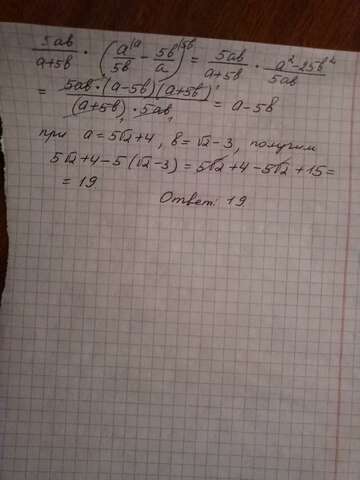 5ab/(a+5b) · (a^(a/5b) − 5b^(5b/a)) = 5ab/(a+5b) · (a² − 25b²)/5ab
= 5ab·(a−5b)(a+5b)/((a+5b)·5ab) = a−5b
при a=5√2+4, b=√2−3, получим
5√2+4−5(√2−3)=5√2+4−5√2+15=
= 19
Ответ: 19.